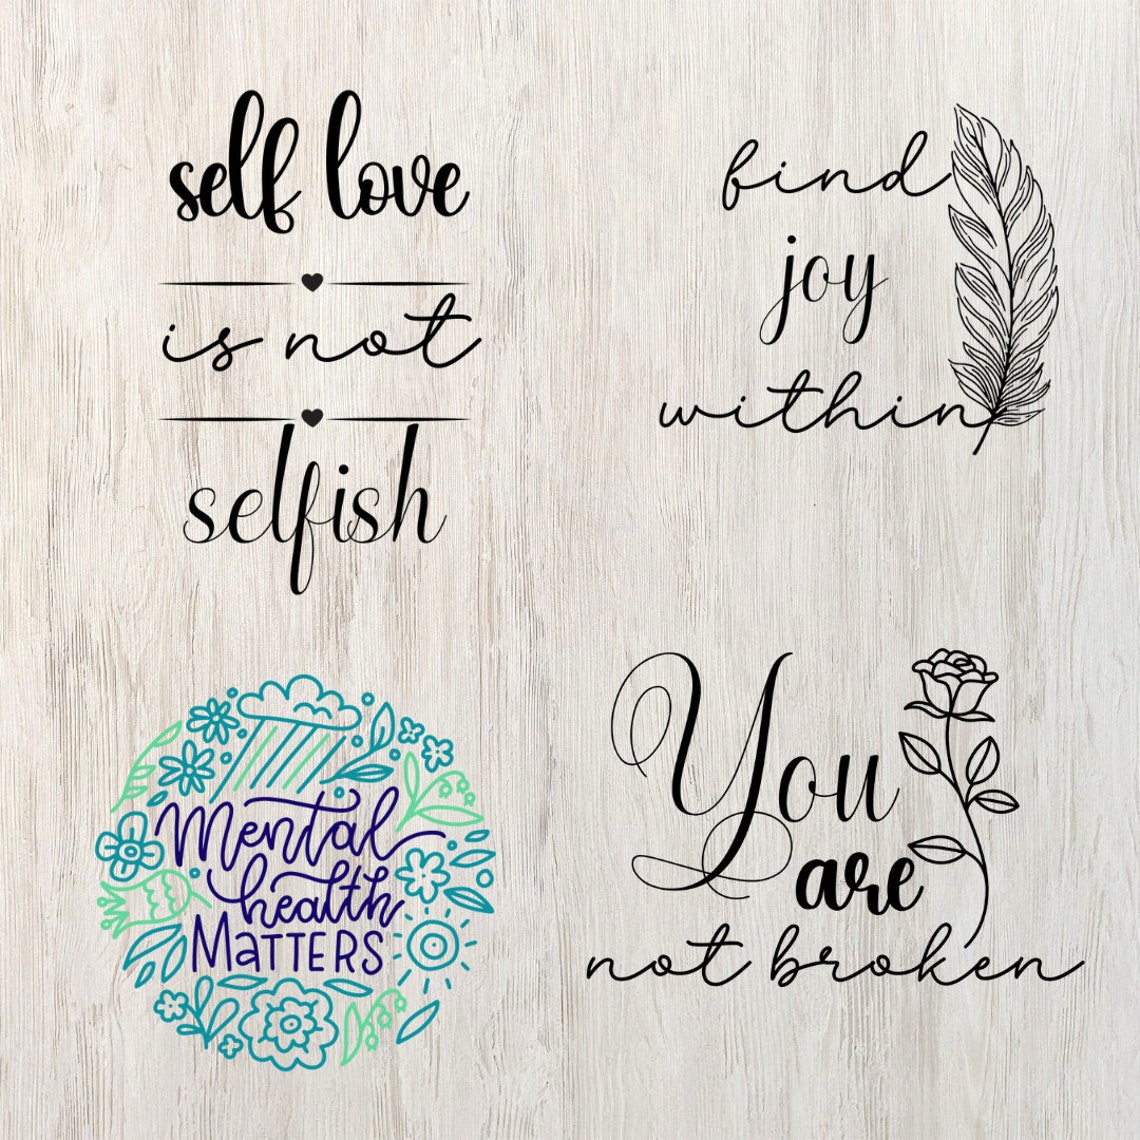 self love
is not
selfish
find
joy
within
Mental
health
MATTERS
You
are
not broken